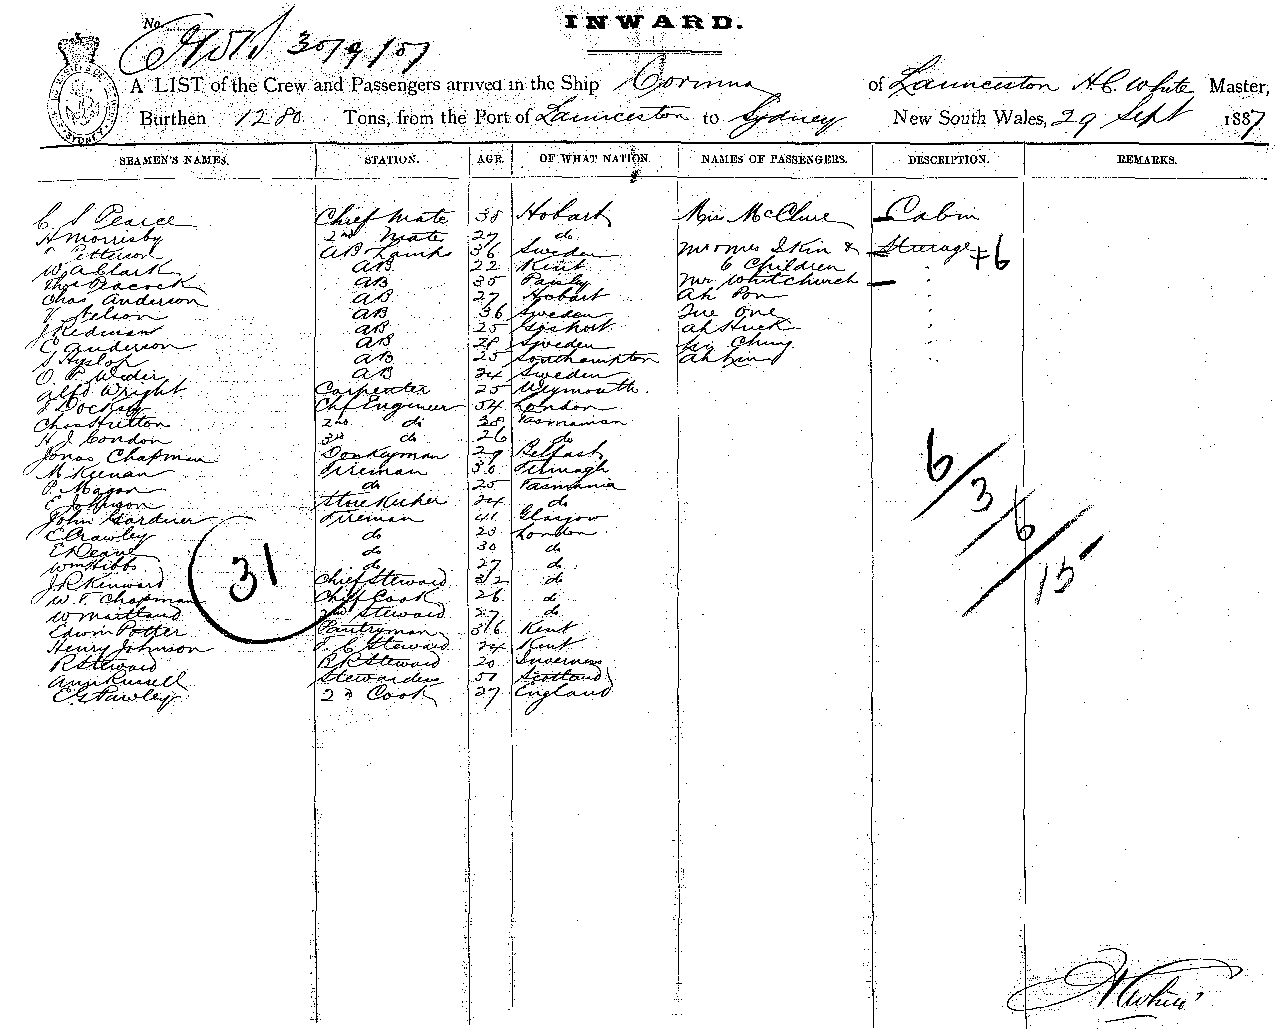 INWARD.
No.
30/9/87
A LIST of the Crew and Passengers arrived in the Ship Corinna of Launceston H. C. White Master,
Burthen 1280 Tons, from the Port of Launceston to Sydney New South Wales, 29 Sept 1887
SEAMEN'S NAMES. STATION. AGE. OF WHAT NATION. NAMES OF PASSENGERS. DESCRIPTION. REMARKS.
C S Pearce Chief Mate 38 Hobart Miss McClure Cabin
H Morrisby 2nd Mate 27 do Mr & Mrs & Steerage +6
Petterson AB Lamps 36 Sweden 6 Children
W A Clark AB 22 Kent Mr Whitchurch
Thos Peacock AB 35 Ah Pon
Chas Anderson AB 27 Hobart Sue One
V Nelson AB 36 Sweden Ah Huck
J Redman AB 25 Ching
C Anderson AB 28 Sweden Ah
S Hyslop AB 25 Southampton
O. P. AB 24 Sweden
Alfd Wright Carpenter 25 Weymouth
Chf Engineer 54 London
Chas Hutton 2nd do 38 Tasmanian
H J Condon 3rd do 26 do
Jonas Chapman Donkeyman 29 Belfast
M Keenan Fireman 30
P. do 25 Tasmania
E Johnson Storekeeper 24 do
John Gardiner Fireman 41 Glasgow
E Crawley do 23 London
E Deane do 30 do
Wm Hibbs do 27 do
J R Kenward Chief Steward 32 do
W. T. Chapman Chief Cook 26 do
W Maitland 2nd Steward 27 do
Edwin Potter Pantryman 36 Kent
Henry Johnson F. C Steward 24 Kent
R Steward B R Steward 20 Inverness
Ann Russell Stewardess 51 Scotland
E G Pawley 2d Cook 27 England
31
6/3/6/15
H C White